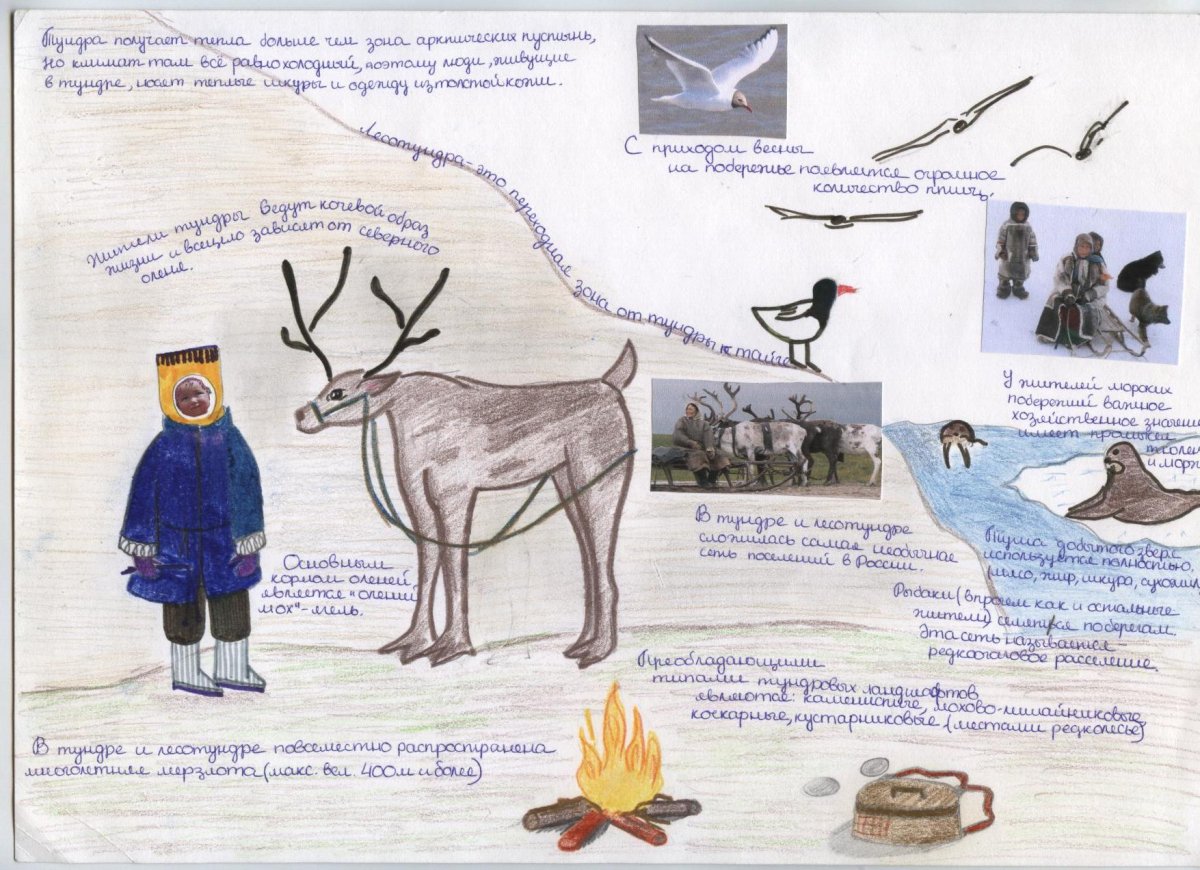 Тундра получает тепла больше чем зона арктических пустынь,
но климат там всё равно холодный, поэтому люди, живущие
в тундре, носят теплые шкуры и одежду из толстой кожи.
Лесотундра-это переходная зона от тундры к тайге
С приходом весны
на побережье появляется огромное
количество птиц.
Жители тундры ведут кочевой образ
жизни и всецело зависят от северного
оленя.
У жителей морских
побережий важное
хозяйственное значение
имеет промысел
тюлен
и морж
Основным
кормом оленей
является "олений
мох"-ягель.
В тундре и лесотундре
сложилась самая необычная
сеть поселений в России.
Туша добытого зверя
используется полностью,
(мясо, жир, шкура, сухожил
Рыбаки (впрочем как и остальные
жители) селятся по берегам.
Эта сеть называется-
редкоочаговое расселение.
Преобладающими
типами тундровых ландшафтов
являются: каменистые, мохово-лишайниковые,
кустарниковые (местами редколесье)
В тундре и лесотундре повсеместно распространена
многолетняя мерзлота (макс. вел. 400м и более)